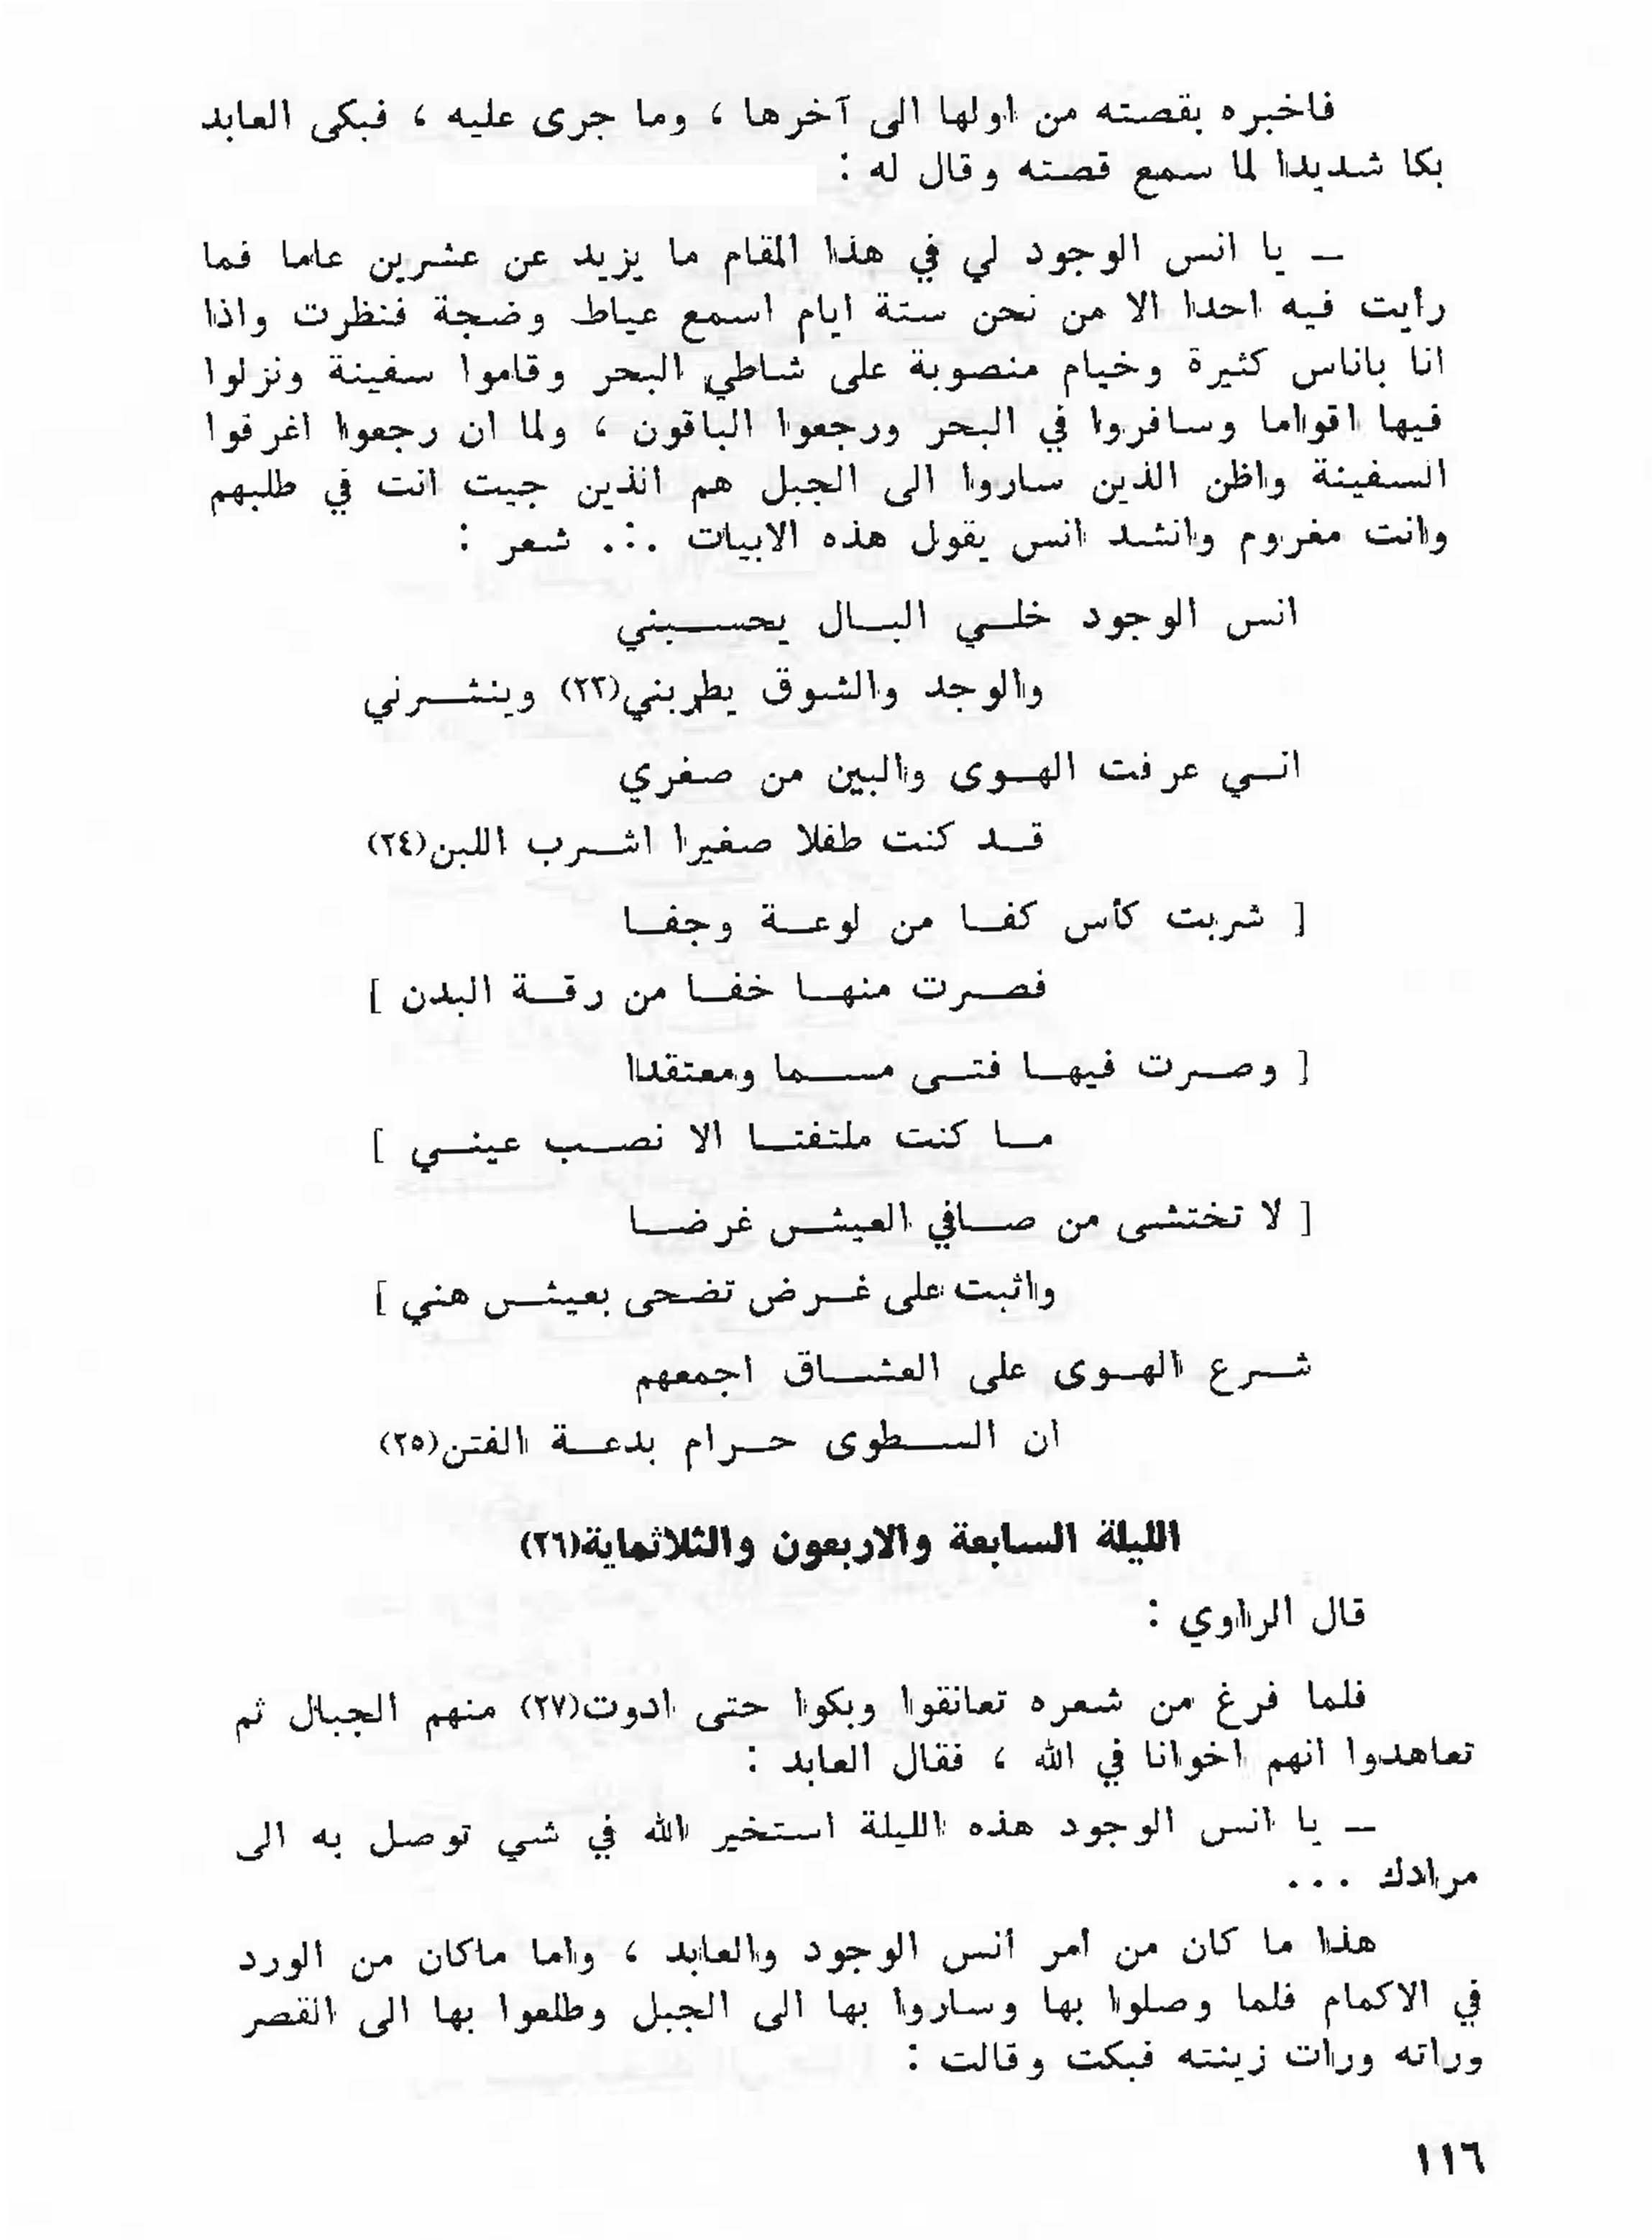 فاخبره بقصته من اولها الى آخرها ، وما جرى عليه ، فبكى العابد
بكا شديدا لما سمع قصته وقال له :
ــ يا انس الوجود لي في هذا المقام ما يزيد عن عشرين عاما فما
رأيت فيه احدا الا من نحن ستة ايام اسمع عياط وضجة فنظرت واذا
انا باناس كثيرة وخيام منصوبة على شاطي البحر وقاموا سفينة ونزلوا
فيها اقواما وسافروا في البحر ورجعوا الباقون ، ولما ان رجعوا اغرقوا
السفينة واظن الذين ساروا الى الجبل هم الذين جيت انت في طلبهم
وانت مغروم وانشد انس يقول هذه الابيات .:. شعر :
انس الوجود خلـي البـال يحسـبني
والوجد والشوق يطربني(٢٣) وينشـرني
انـي عرفت الهـوى والبين من صغري
قـد كنت طفلا صغيرا اشـرب اللبن(٢٤)
[ شربت كأس كفـا من لوعـة وجفـا
فصـرت منهـا خفـا من رقـة البدن ]
[ وصـرت فيهـا فتـى مسـما ومعتقدا
مـا كنت ملتفتـا الا نصـب عينـي ]
[ لا تختشى من صـافي العيش غرضـا
واثبت على غـرض تضحى بعيش هني ]
شـرع الهـوى على العشـاق اجمعهم
ان السـطوى حـرام بدعـة الفتن(٢٥)
الليلة السابعة والاربعون والثلاثماية(٢٦)
قال الراوي :
فلما فرغ من شعره تعانقوا وبكوا حتى ادوت(٢٧) منهم الجبال ثم
تعاهدوا انهم اخوانا في الله ، فقال العابد :
ــ يا انس الوجود هذه الليلة استخير الله في شي توصل به الى
مرادك ...
هذا ما كان من امر أنس الوجود والعابد ، واما ماكان من الورد
في الاكمام فلما وصلوا بها وساروا بها الى الجبل وطلعوا بها الى القصر
وراته ورات زينته فبكت وقالت :
١١٦